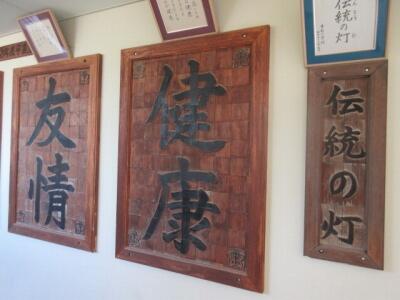 友情
健康
伝統の灯
伝統の灯